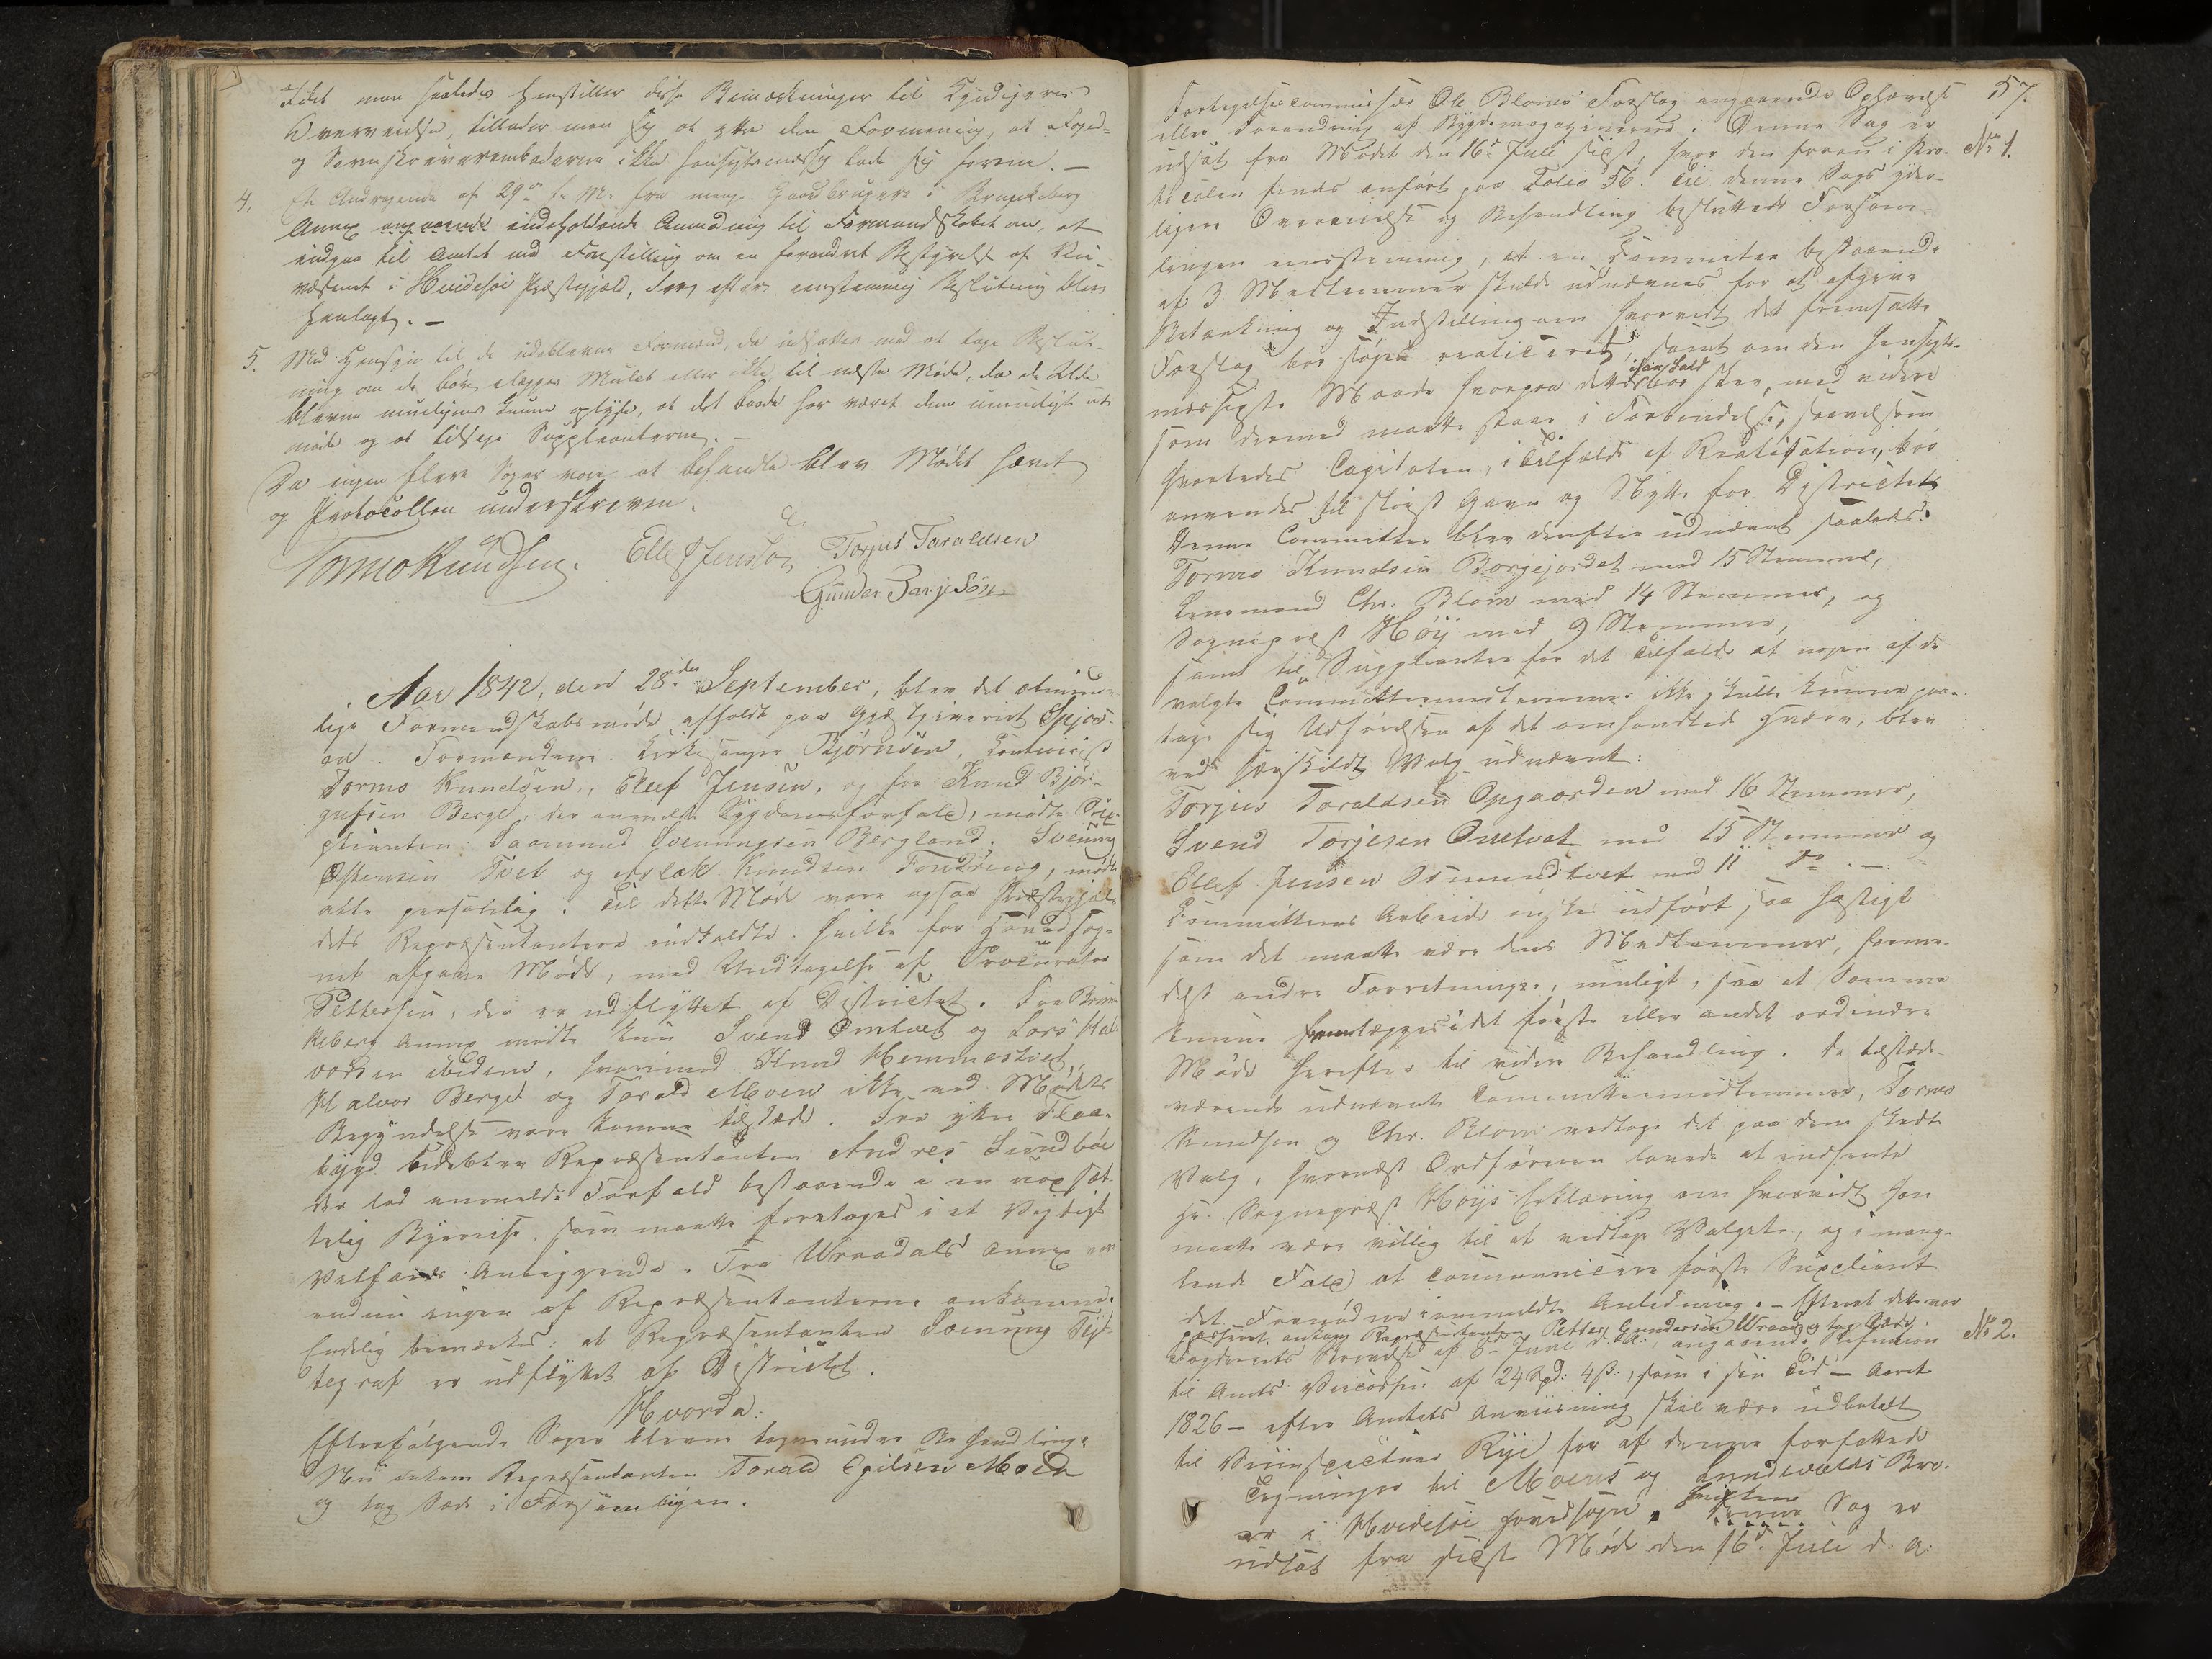 Idet man saaledes henstiller disse Bemærkninger til Kyndigeres
Overveielse, tillader man sig at yttre den Formening, at Foged-
og Sorenskriverembederne ikke hensigtsmæssig lade sig forene. —
4. Et Andragende af 29de f. M. fra mange Gaardbrugere i Brunkeberg
Annex angaaende indeholdende Anmodning til Formandskabet om, at
indgaa til Amtet med Forestilling om en forandret Bestyrelse af
væsenet i Hvidesøe Præstegjæld, blev efter eenstemmig Beslutning blev
henlagt. —
5. Med Hensyn til de udeblevne Formænd, da udsattes med at tage Beslut-
ning om de bør ilægges Mulct eller ikke til næste Møde, da de Ude-
blevne muligens kunne oplyse, at det baade har været dem umuligt at
møde og at tilsige Suppleanterne. —
Da ingen flere Sager vare at behandle blev Mødet hævet
og Protocollen underskreven.
Tormo Knudsen. Ellef Jensen Torjus Taraldsen
Gunder Tarjesøn
Aar 1842, den 28de September, blev det alminde-
lige Formandskabsmøde afholdt paa Gjæstgiveriet Spjos-
od. Formændene: Kirkesanger Bjørnsen,
Tormo Knudsen, Ellef Jensen, og for Knud Bjør-
gufsen Berge, der anmeldte Sygdomsforfald, mødte Sup-
plianten Saamund Svenungsen Bergland. Svenung
Østensen Tvet og Aslak Knudsen Fonddeng, mødte
alle personlig. Til dette Møde vare ogsaa Præstegjæl-
dets Repræsentantere indkaldte: hvilke for Hovedsog-
net afgave Møde, med Undtagelse af Procurator
Pettersen, der er udflyttet af Districtet. Fra Brun-
keberg Annex mødte kun Svend Omtvet og Lars Hal-
vorsen ibidem, hvorimod Knud Hemmestvet,
Halvor Berget og Torald Moen ikke ved Mødets
Begyndelse vare komne tilstæde. For ytre Flaa-
bygd udeblev Repræsentanten Andres Sundbøe
der lod anmelde Forfald bestaaende i en uopsæt-
telig Byereise, som maatte foretages i et vigtigt
Velfærds Anliggende. Fra Wraadals Annex var
endnu ingen af Repræsentanterne ankomne.
Endelig bemærkes: at Repræsentanten Soening
er udflyttet af Districtet.
Hvorda:
Efterfølgende Sager bleve tagne under Behandling:
Nu ankom Repræsentanten Torald Egilsen Moen
og tog Sæde i Forsamlingen.
57.
Fortegelsescommissær Ole Bloms Forslag angaaende Ophævelse
eller Forandring af Bygdemagazinerne. Denne Sag er
No 1.
udsat fra Mødet den 16de Juli sidst, hvor den foran i Pro-
tocolen findes anført paa Folio 56. Til denne Sags yder-
ligere Overveielse og Behandling besluttede Forsam-
lingen eenstemmig, at en Committee bestaaende
af 3 Medlemmer skulde udnævnes for at afgive
Betænkning og Indstilling om hvorvidt det fremsatte
Forslag bør søges realiceret, samt om den hensigts-
mæssigste Maade hvorpaa dette isaafald bør skee, med videre
som dermed maatte staae i Forbindelse, saavelsom
hvorledes Capitalen, i Tilfælde af Realisation, bør
anvendes til størst Gavn og Nytte for Districtet.
Denne Committee blev derefter udnævnt saaledes:
Tormo Knudsen Borgejordet med 15 Stemmer,
Lensmand Chr. Blom med 14 Stemmer, og
Sognepræst Höij med 9 Stemmer,
samt til Supplianter for det Tilfælde at nogen af de
valgte Committeemedlemmer ikke skulle kunne paa-
tage sig Udførelsen af det omhandlede Hværv, blev
ved særskildt Valg udnævnt:
Torjus Taraldsen Opgaarden med 16 Stemmer,
Svend Torjesen Omtvet med 15 Stemmer og
Ellef Jensen Simundtvet med 11 do. —
Committeens Arbeide ønskes udført saa hastigt
som det maatte være dens Medlemmer, forme-
delst andre Forretninger, muligt, saa at Samme
kunne fremlægges i det første eller andet ordinære
Møde herefter til videre Behandling. De tilstede-
værende udnævnte Committeemedlemmer, Tormo
Knudsen og Chr. Blom vedtoge det paa dem skeede
Valg, hvornæst Ordføreren lovede at indhente
Hr. Sognepræst Höijs Erklæring om hvorvidt han
maatte være villig til at vedtage Valget, og i mang-
lende Fald at communicere første Supliant
det Fremødne i anmeldte Anledning. — Efterat dette var
passeret, ankom Repræsentanten Petter Gundersen Wraa og tog Sæde.
No 2.
Fogderiets Skrivelse af 8de Juni d. A., angaaende Refusion
til Amts af 24 Spd: 4 ß:, som i sin Tid — Aaret
1826 — efter Amtets Anviisning skal være udbetalt
til Veiinspecteur Rije for af denne forfattede
Tegninger til Moens og Lundevalds Bro-
er i Hvidesøe Hovedsogn. hvilken Denne Sag er
udsat fra sidste Møde den 16de Juli d. A.